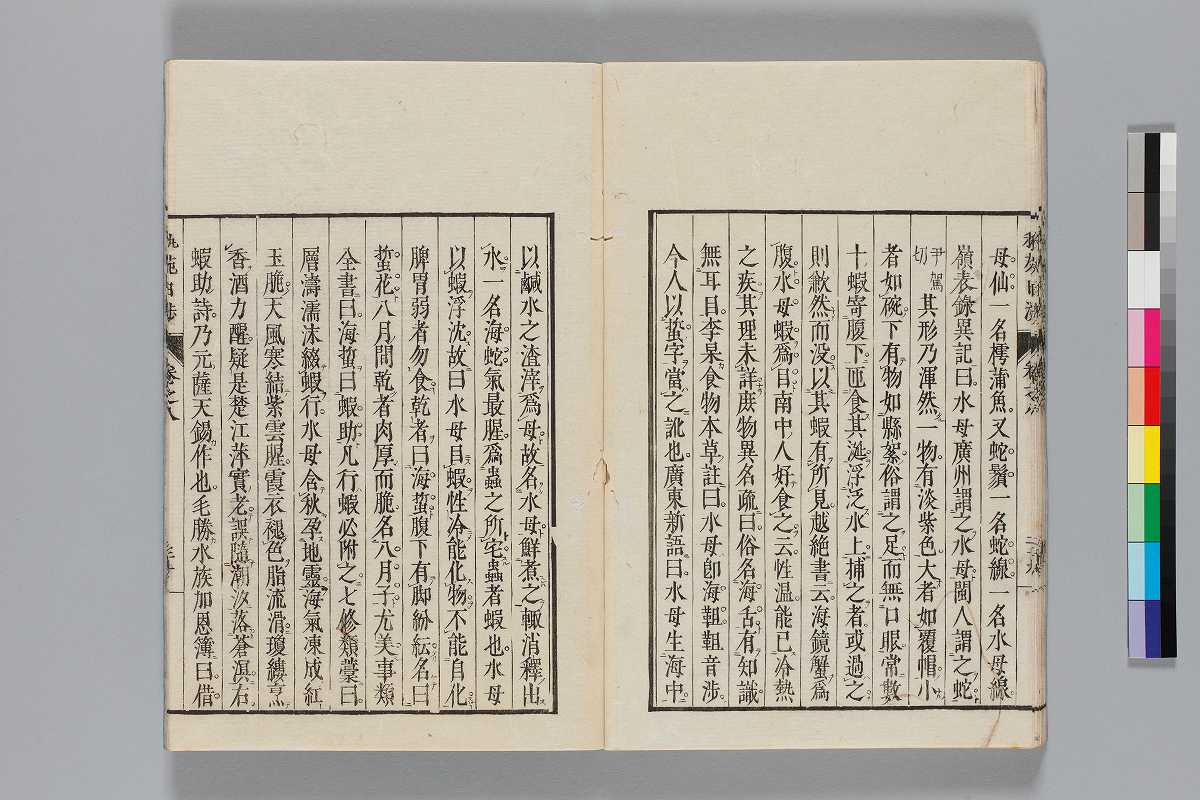 母仙一名樗蒲魚又蛇鬚一名蛇線一名水母線
嶺表錄異記曰水母廣州謂之水母閩人謂之蛇
尹駕
切
其形乃渾然一物有淡紫色大者如覆帽小
者如碗下有物如縣絮俗謂之足而無口眼常數
十蝦寄腹下匝食其涎浮泛水上捕之者或過之
則歘然而没以其蝦有所見越絶書云海鏡蟹爲
腹水母蝦爲目南中人好食之云性温能已冷熱
之疾其理未詳庶物異名疏曰俗名海舌有知識
無耳目李杲食物本草註曰水母卽海䩆䩆音渉
今人以蜇字當之訛也廣東新語曰水母生海中
以鹹水之渣滓爲母故名水母鮮煮之輒消釋出
水一名海蛇氣最腥爲蟲之所宅蟲者蝦也水母
以蝦浮沈故曰水母目蝦性冷能化物不能自化
脾胃弱者勿食乾者曰海蜇腹下有脚紛紜名曰
蜇花八月間乾者肉厚而脆名八月子尤美事類
全書曰海蜇曰蝦助凡行蝦必附之七修類藁曰
層濤濡沫綴蝦行水母含秋孕地靈海氣凍成紅
玉脆天風寒結紫雲腥霞衣褪色脂流滑瓊縷烹
香酒力醒疑是楚江萍實老誤隨潮汐落蒼溟右
蝦助詩乃元薩天錫作也毛勝水族加恩簿曰借
卷之八